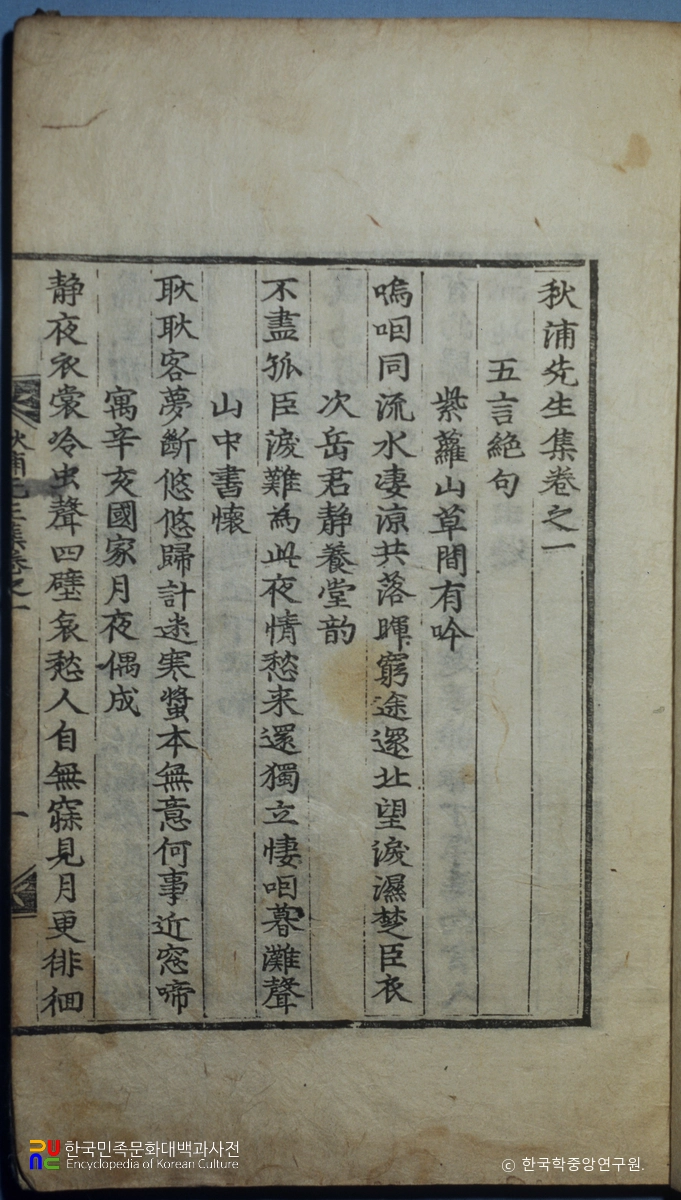 秋浦先生集卷之一
五言絶句
紫蘿山草間有吟
嗚咽同流水凄凉共落暉窮途還北望淚濕楚臣衣
次岳君静養堂韵
不盡孤臣淚難為此夜情愁来還獨立悽咽暮灘聲
山中書懷
耿耿客夢斷悠悠歸計迷寒螿本無意何事近窓啼
寓辛亥國家月夜偶成
静夜衣裳冷虫聲四壁哀愁人自無寐見月更徘徊
秋浦先生集卷之一
一
한국민족문화대백과사전
Encyclopedia of Korean Culture
ⓒ 한국학중앙연구원.